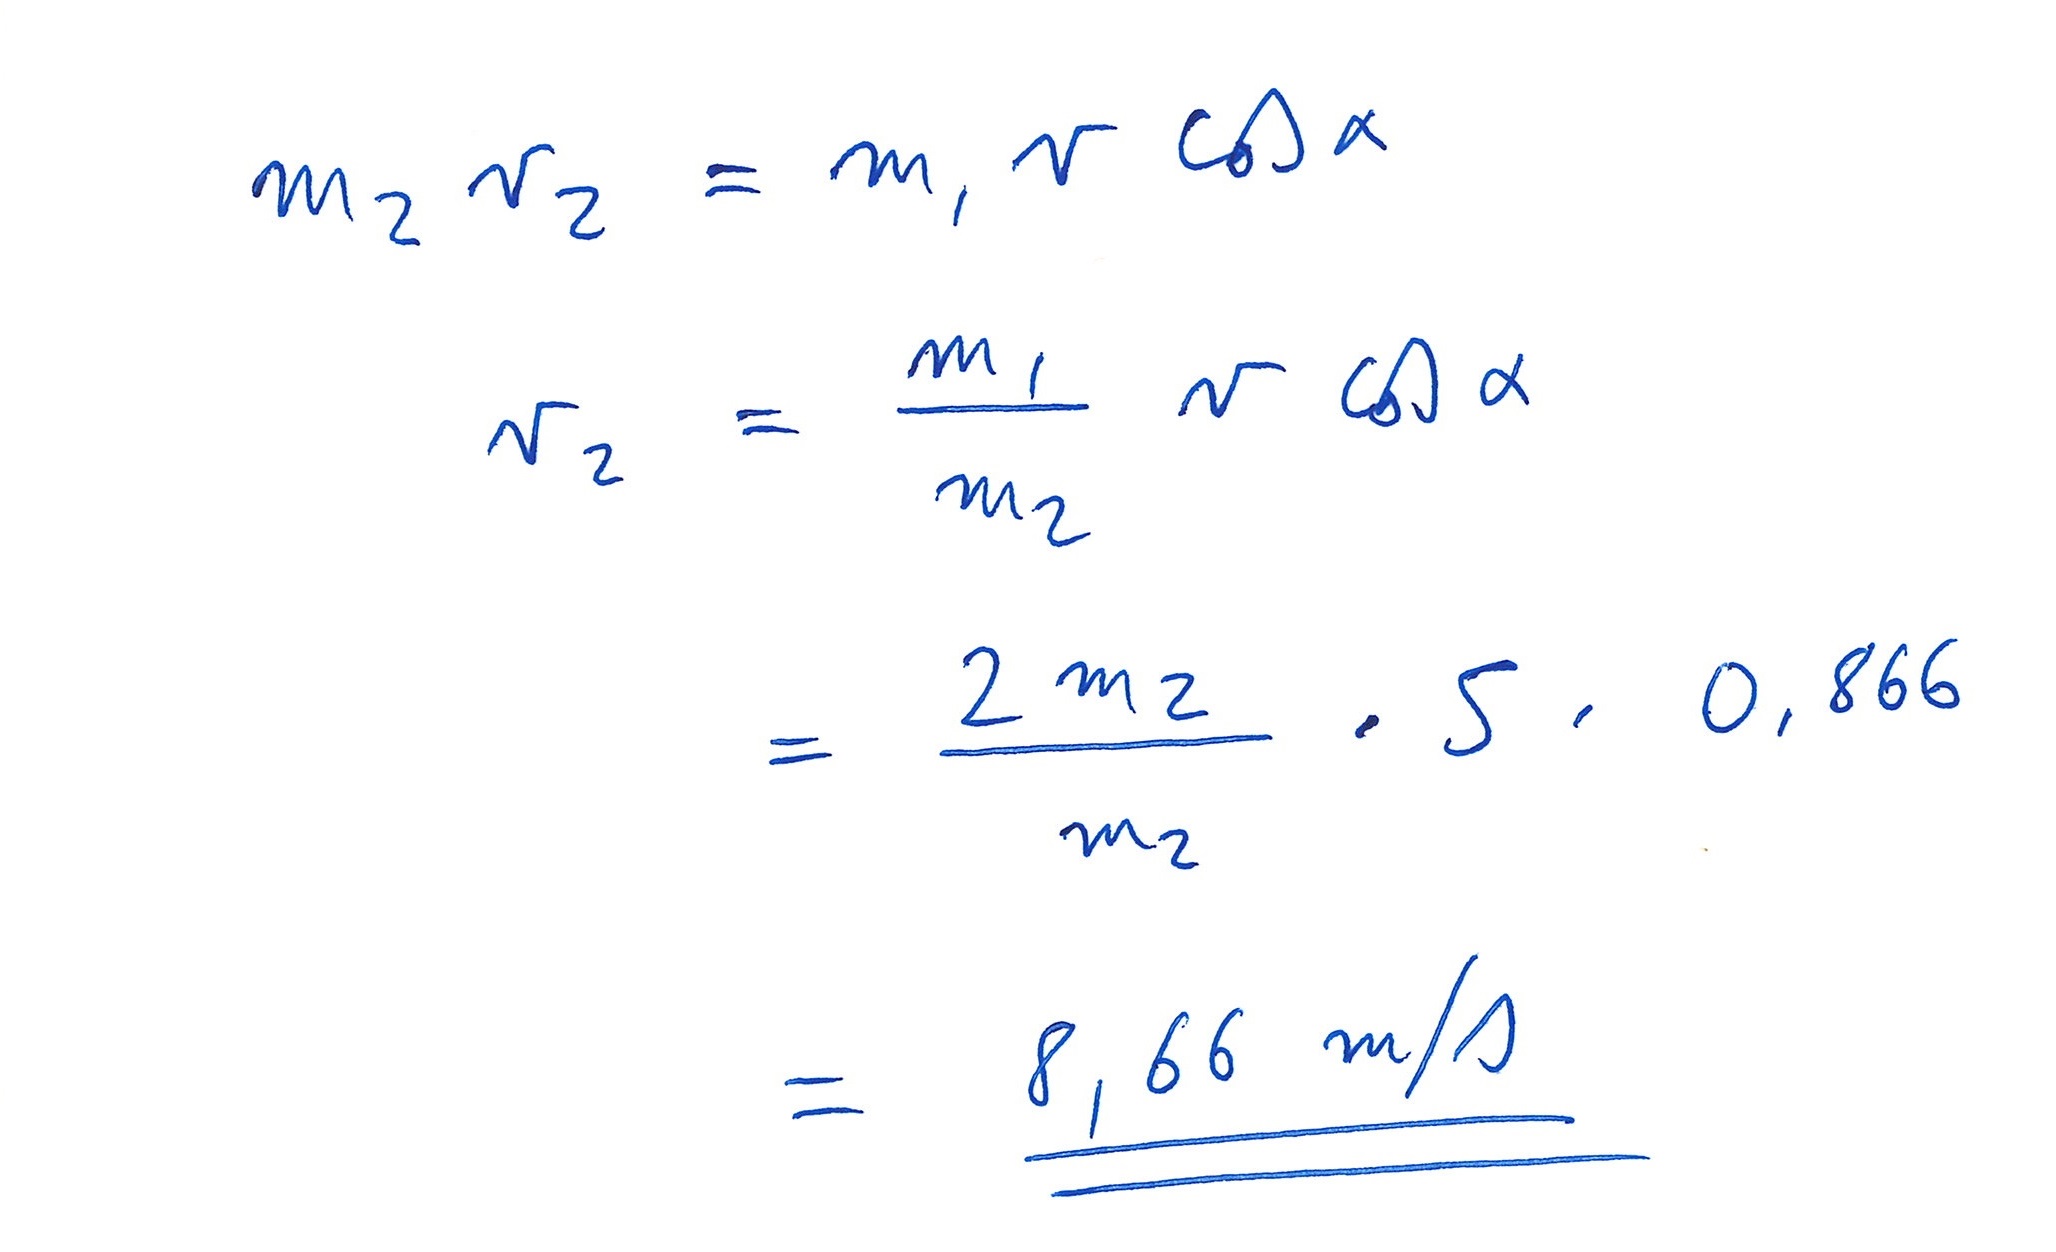 m₂ v₂ = m₁ v cos α
v₂ = m₁/m₂ v cos α
= 2 m₂/m₂ · 5 · 0,866
= 8,66 m/s